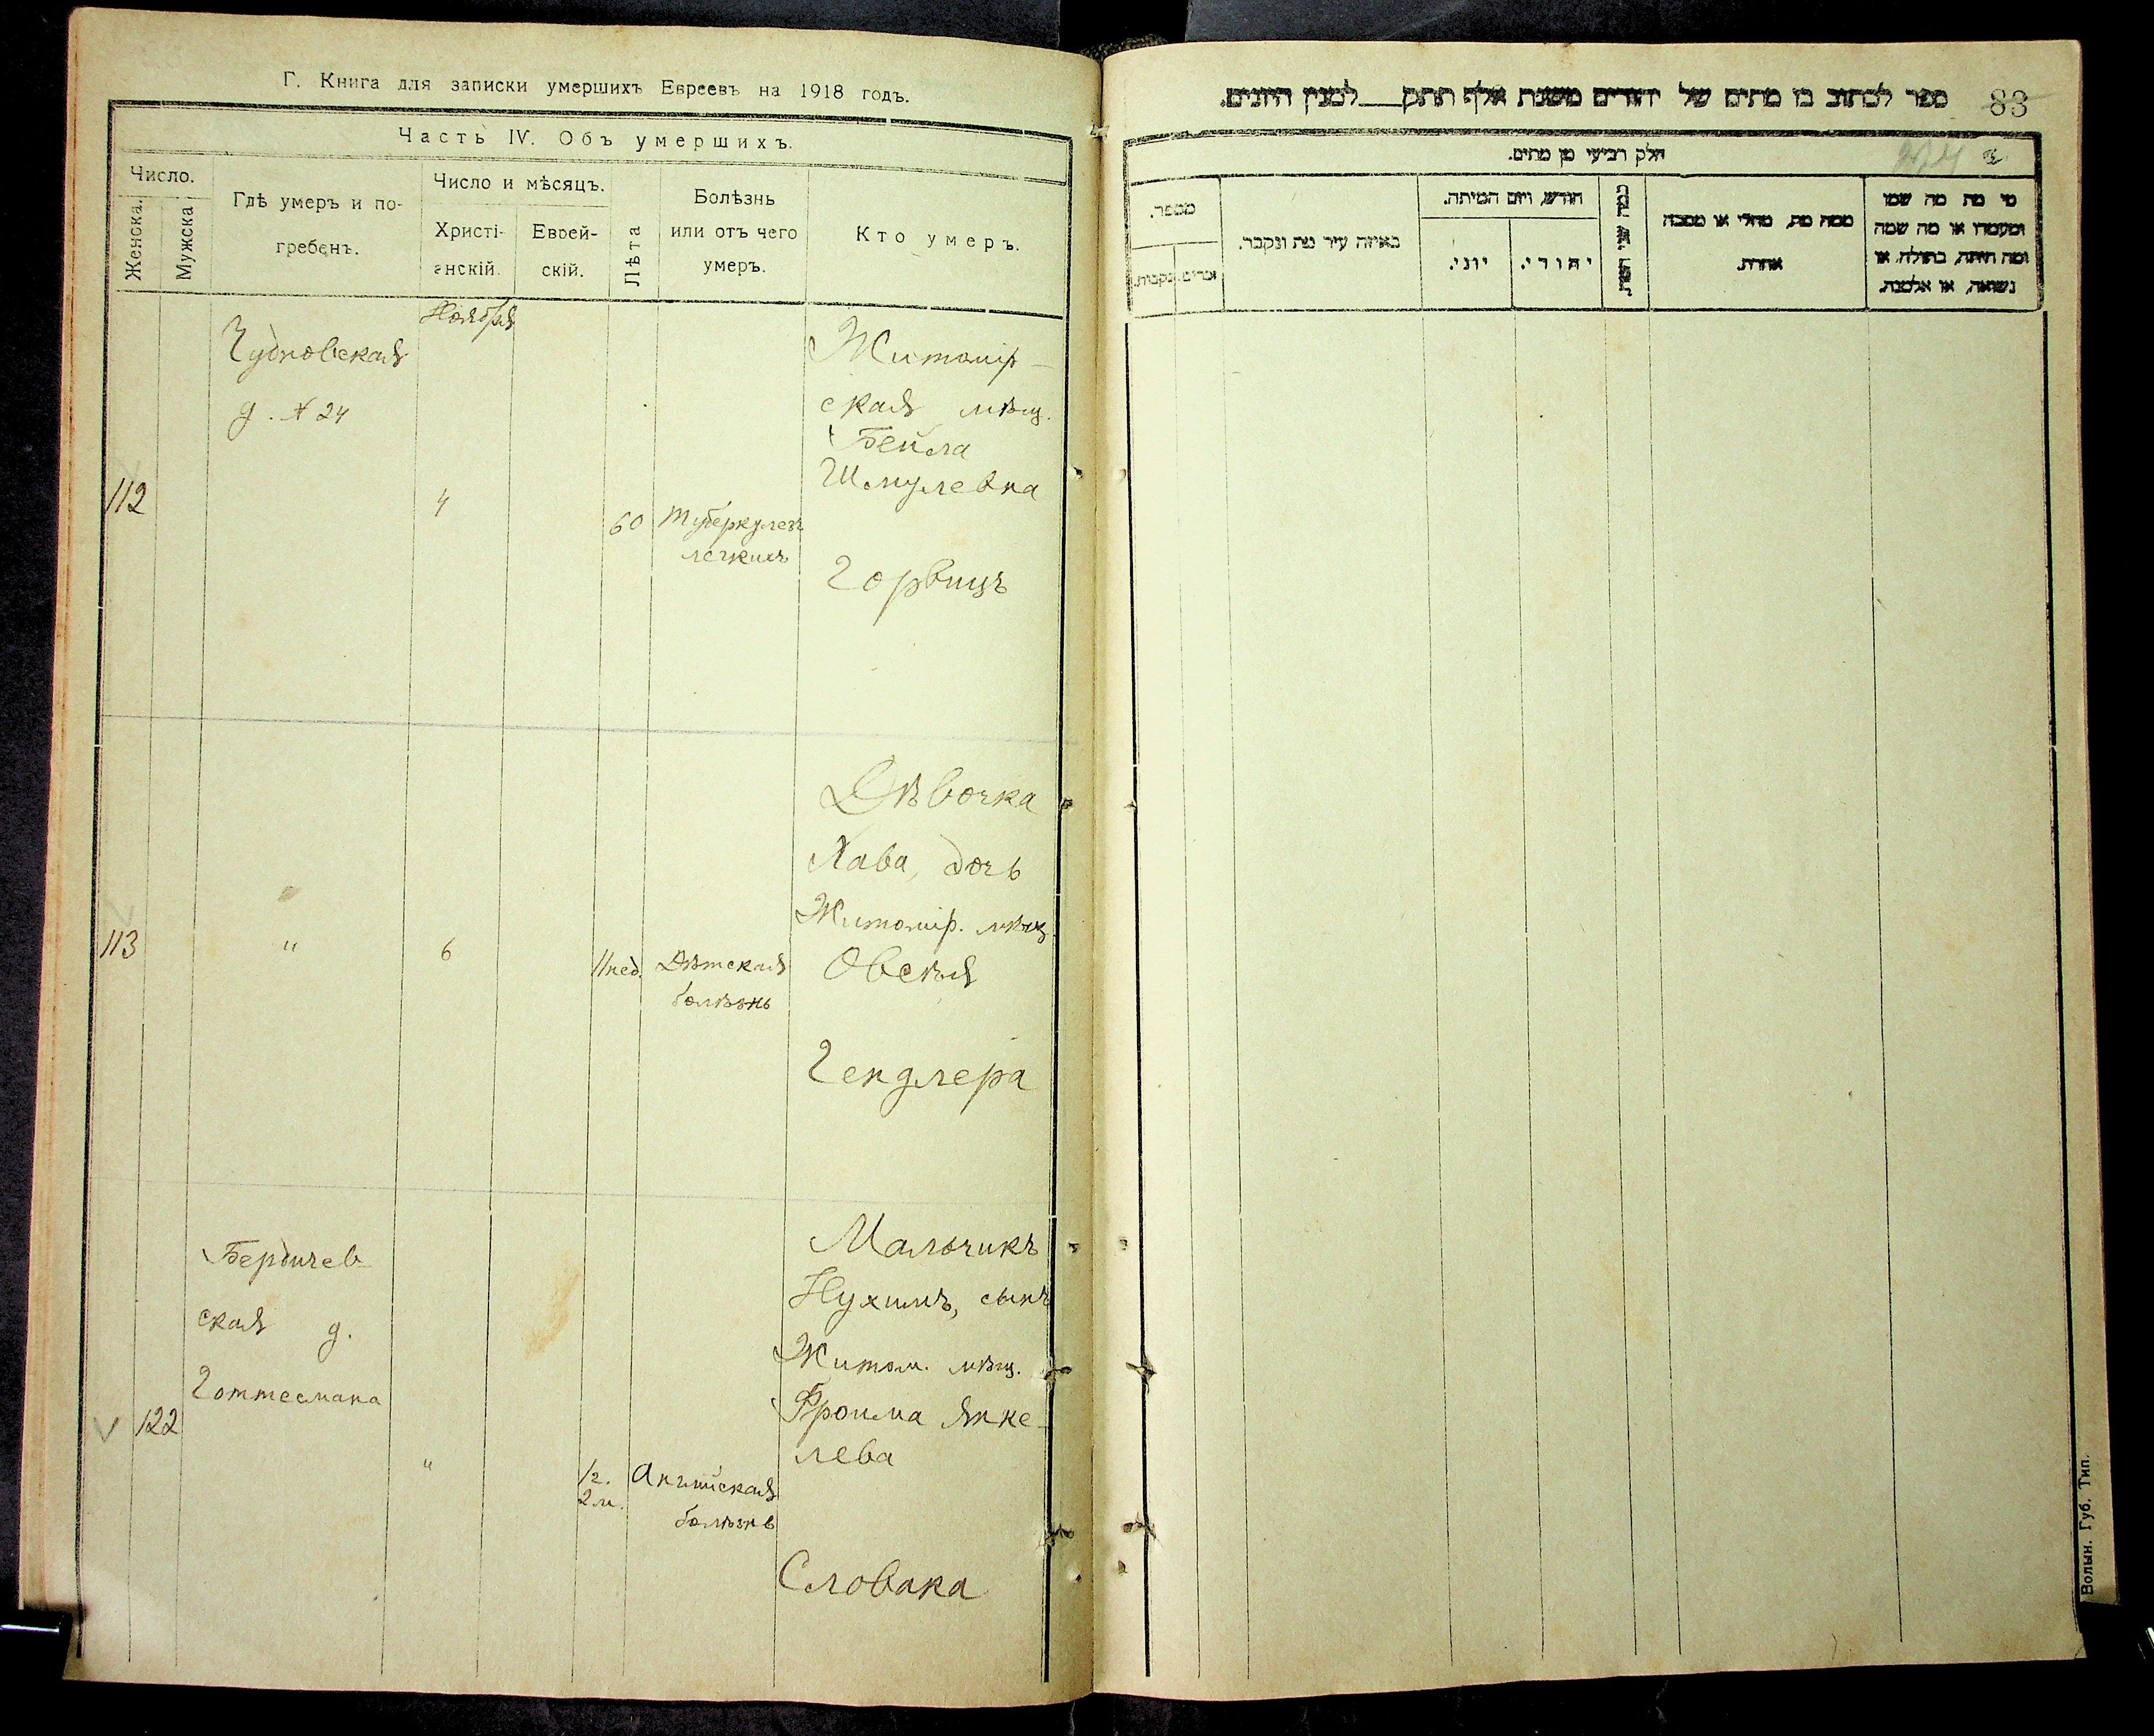 Г. Книга для записки умершихъ Евреевъ на 1918 годъ.
Часть IV. Объ умершихъ.
Число.
Женска.
Мужска
Гдѣ умеръ и по-
гребенъ.
Число и мѣсяцъ.
Христі-
анскій.
Еврей-
скій.
Лѣта
Болѣзнь
или отъ чего
умеръ.
Кто умеръ.
Ноября
Чудновская
д. № 24
112
4
60
туберкулезъ
легкихъ
Житомір-
ская мѣщ.
Бейла
Шмулевна
Горвицъ
113
"
6
11 нед.
Дѣтская
болѣзнь
Дѣвочка
Хава, дочь
Житомір. мѣщ.
Овсѣя
Гендлера
Бердичев-
ская д.
Готтесмана
122
"
1 г.
2 м.
Англійская
болѣзнь
Мальчикъ
Нухимъ, сынъ
Житом. мѣщ.
Фроима Янке-
лева
Словака
ספר לכתוב בו מתים של יהודים משנת אלף תתק__למנין היונים.
83
חלק רביעי מן מתים.
מספר.
זכרים.
נקבות.
באיזה עיר מת ונקבר.
חודש, ויום המיתה.
יוני.
יהודי.
ממה מת, מחלי או מסבה
אחרת.
מי מת מה שמו
ומעמדו או מה שמה
ומה היתה, בתולה, או
נשואה, או אלמנה.
Волын. Губ. Тип.